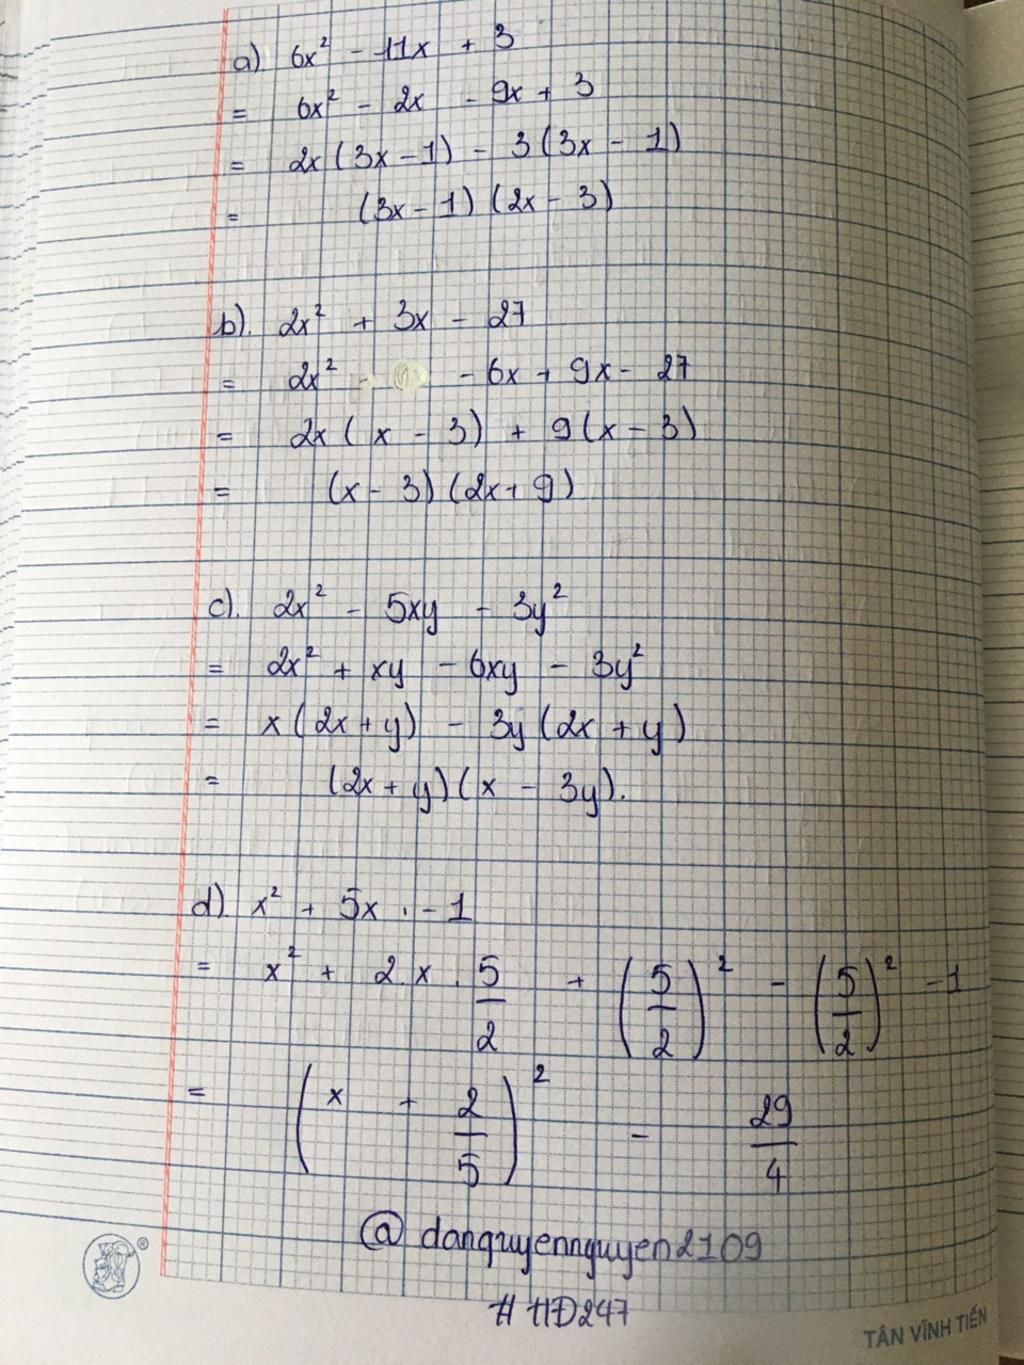 a) 6x² - 11x + 3
= 6x² - 2x - 9x + 3
= 2x(3x-1) - 3(3x - 1)
= (3x-1)(2x-3)
b). 2x² + 3x - 27
= 2x² - 6x + 9x - 27
= 2x(x - 3) + 9(x-3)
= (x-3)(2x+9)
c). 2x² - 5xy - 3y²
= 2x² + xy - 6xy - 3y²
= x(2x+y) - 3y(2x+y)
= (2x+y)(x - 3y).
d) x² + 5x . - 1
= x² + 2.x.5/2 + (5/2)² - (5/2)² - 1
= (x + 2/5)² - 29/4
@danquyennguyen2109
# HD247
®
TÂN VĨNH TIẾN